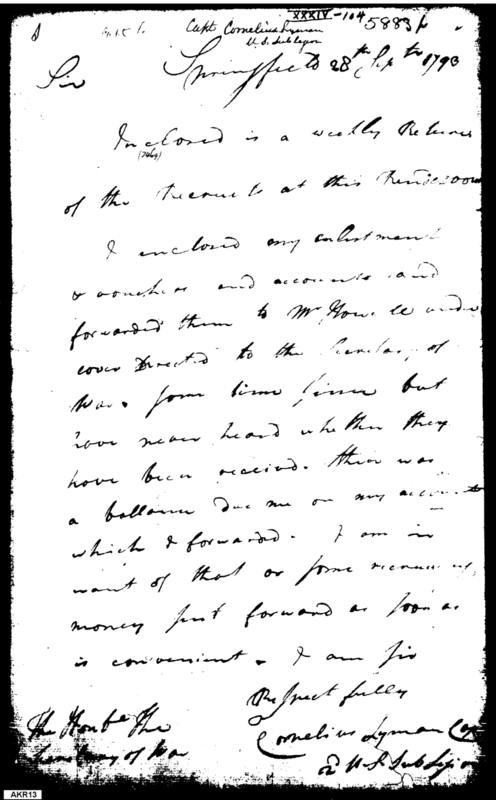 XXXIV-104 5883
Capt Cornelius Lyman
U. S. Sub Legion
Springfield 28th Sepr 1793
Sir
Inclosed is a weekly Return
of the Recruits at this Rendezvous
I enclosed my enlistment
& vouchers and accounts and
forwarded them to Mr Howell under
cover Directed to the Secretary of
War. some time since but
have never heard whether they
have been received. there was
a ballance due me on my accounts
which I forwarded. I am in
want of that or some recruiting
money sent forward as soon as
is convenient. I am Sir
Respectfully
Cornelius Lyman Cap
2d U S Sub Legion
The Honble The
Secretary of War
AKR13